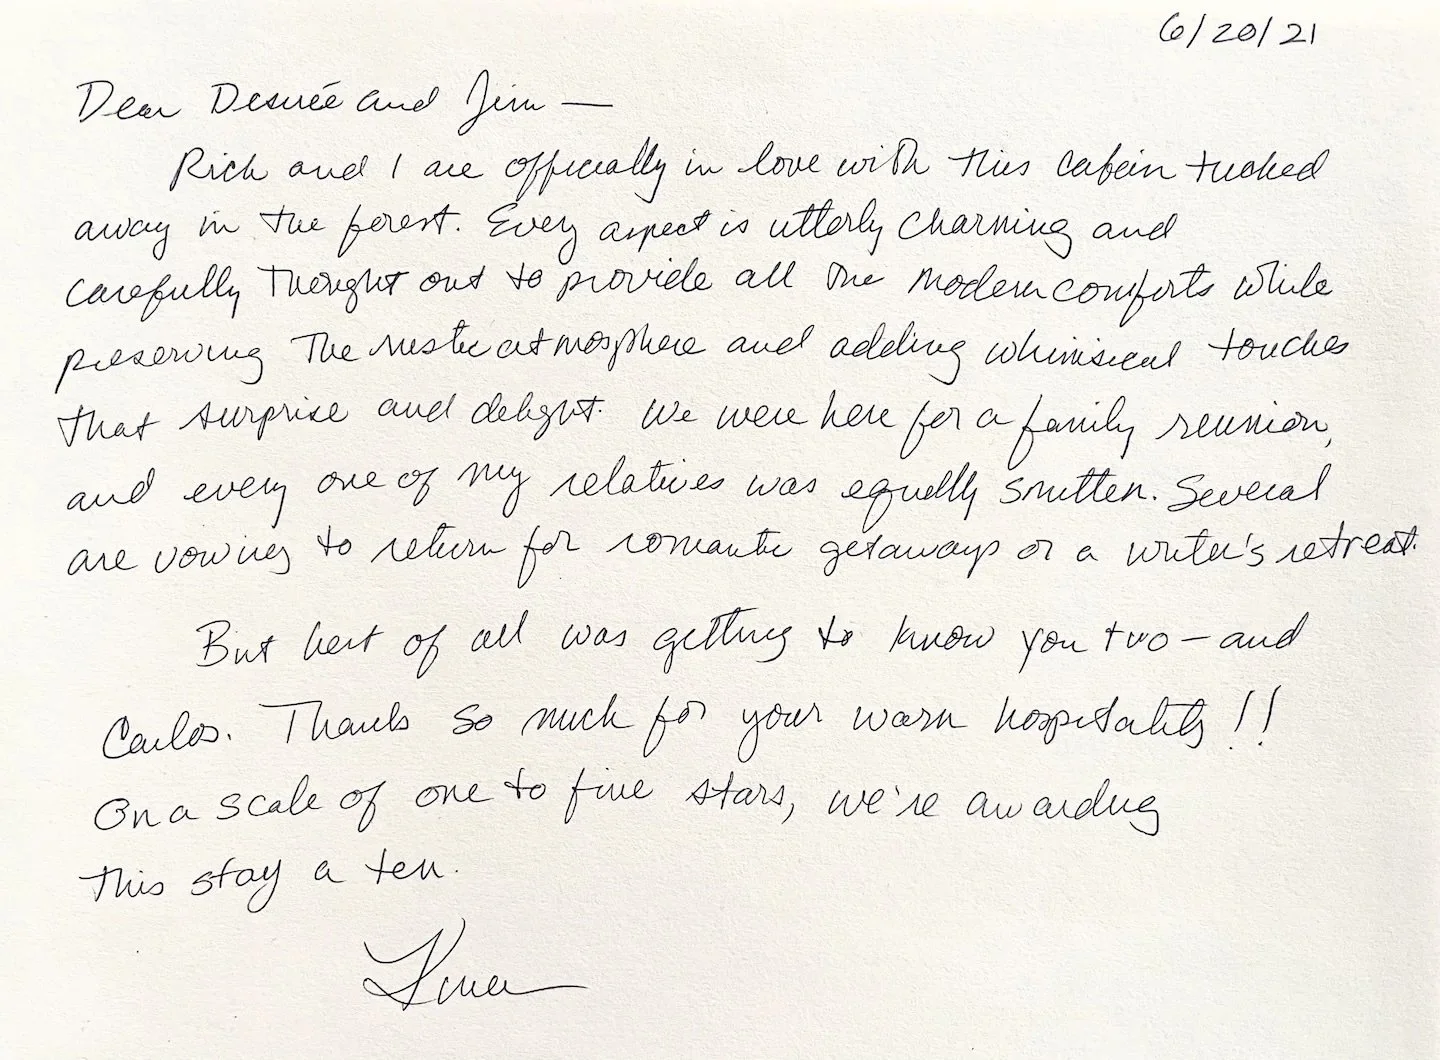 6/20/21
Dear Desirée and Jim —
Rich and I are officially in love with this cabin tucked
away in the forest. Every aspect is utterly charming and
carefully thought out to provide all the modern comforts while
preserving the rustic atmosphere and adding whimsical touches
that surprise and delight. We were here for a family reunion,
and every one of my relatives was equally smitten. Several
are vowing to return for romantic getaways or a writer's retreat.
But best of all was getting to know you two – and
Carlos. Thanks so much for your warm hospitality!!
On a scale of one to five stars, we're awarding
this stay a ten.